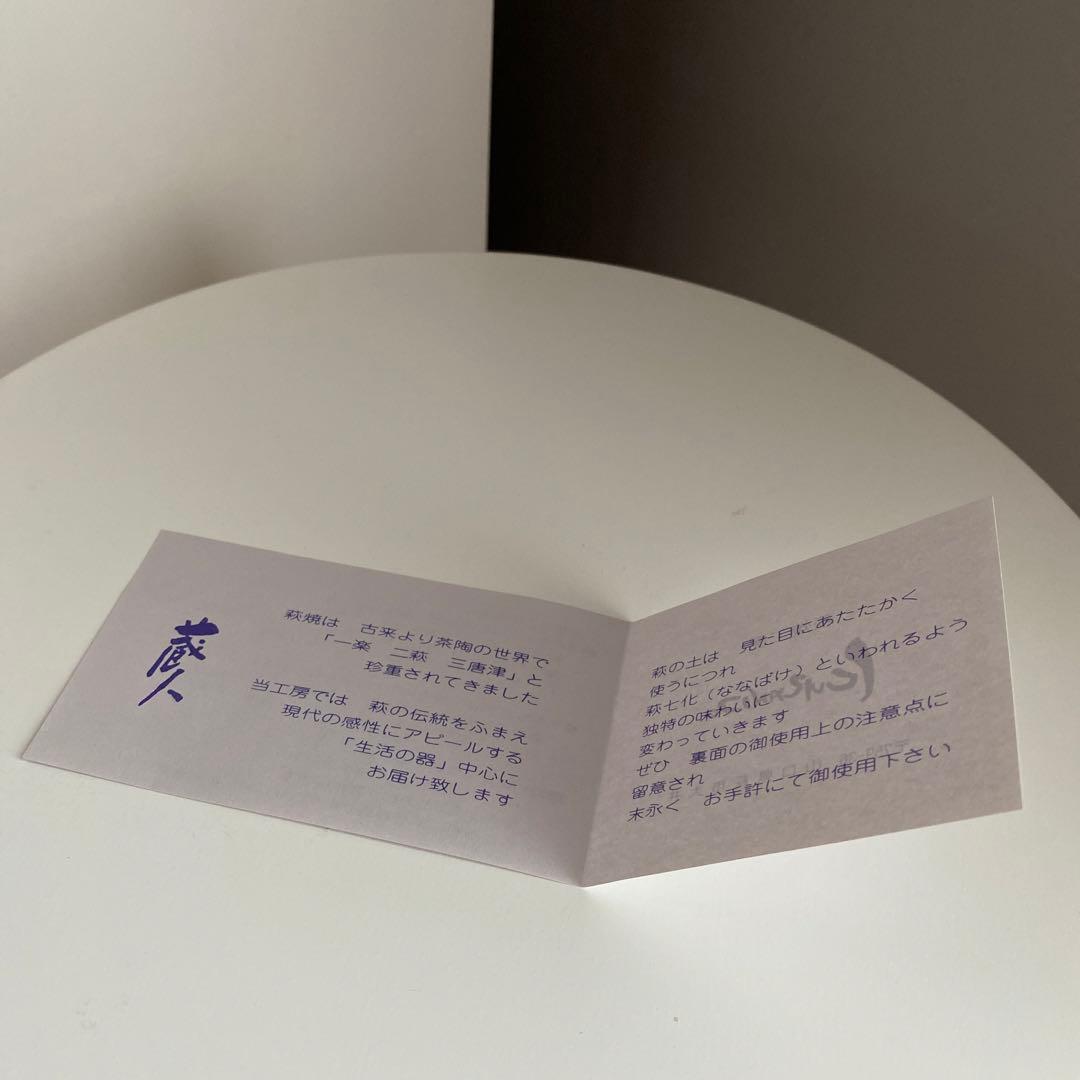 蔵人
萩焼は 古来より茶陶の世界で
「一楽 二萩 三唐津」と
珍重されてきました
当工房では 萩の伝統をふまえ
現代の感性にアピールする
「生活の器」中心に
お届け致します
萩の土は 見た目にあたたかく
使うにつれ
萩七化(ななばけ)といわれるよう
独特の味わいに
変わっていきます
ぜひ 裏面の御使用上の注意点に
留意され
末永く お手許にて御使用下さい